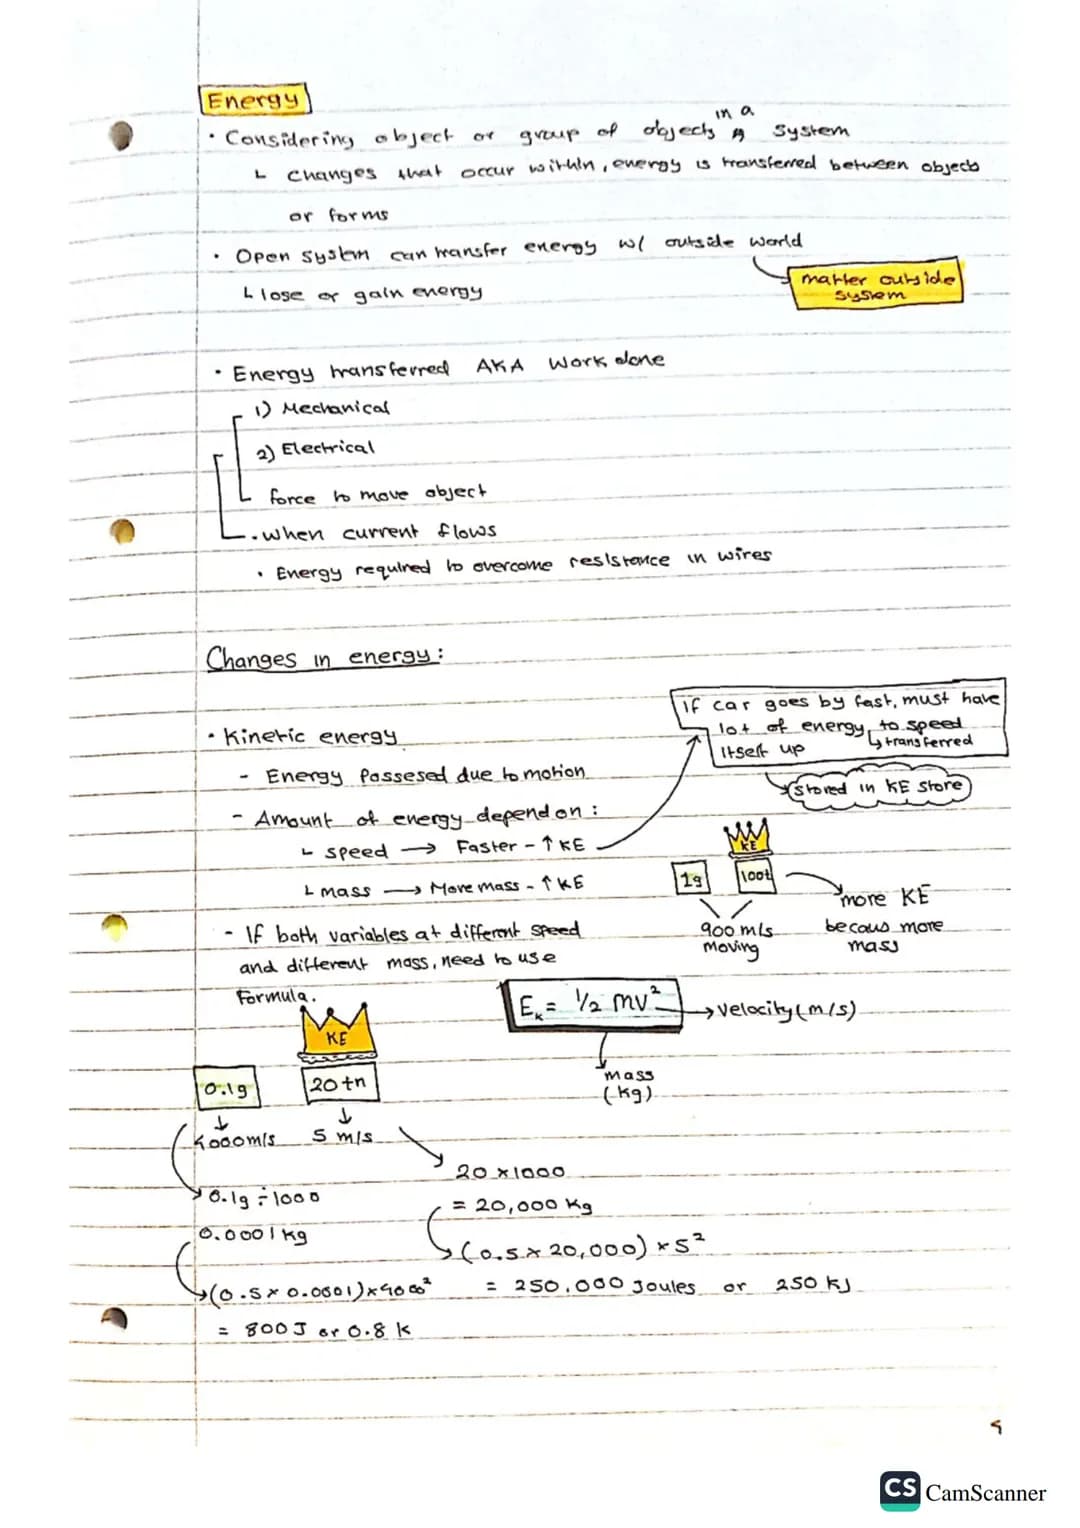 Energy
in a
• Considering object or group of objects A system
↳ changes that occur within, energy is transferred between objects
or forms
• Open system can transfer energy w/ outside world
↳ lose or gain energy
matter outside
system
• Energy transferred AKA Work done
1) Mechanical
2) Electrical
force to move object
• when current flows
• Energy required to overcome resistance in wires
Changes in energy:
If car goes by fast, must have
lot of energy, to speed
itself up
↳ transferred
stored in KE store
• Kinetic energy
- Energy Possesed due to motion
- Amount of energy depend on :
↳ speed → Faster - ↑ KE
↳ mass → More mass - ↑ KE
KE
1g
100t
900 m/s
moving
more KE
becaus more
mass
- If both variables at different speed
and different mass, need to use
formula.
Ek = 1/2 mv²
→ velocity (m/s)
mass
(kg)
KE
0.1g
20 tn
4000m/s
5 m/s
20 x 1000
= 20,000 Kg
(0.5 x 20,000) x 5²
= 250,000 Joules or 250 kJ
0.1g ÷ 1000
0.0001 kg
(0.5 x 0.0001) x 4000²
= 800 J or 0.8 K
CS CamScanner